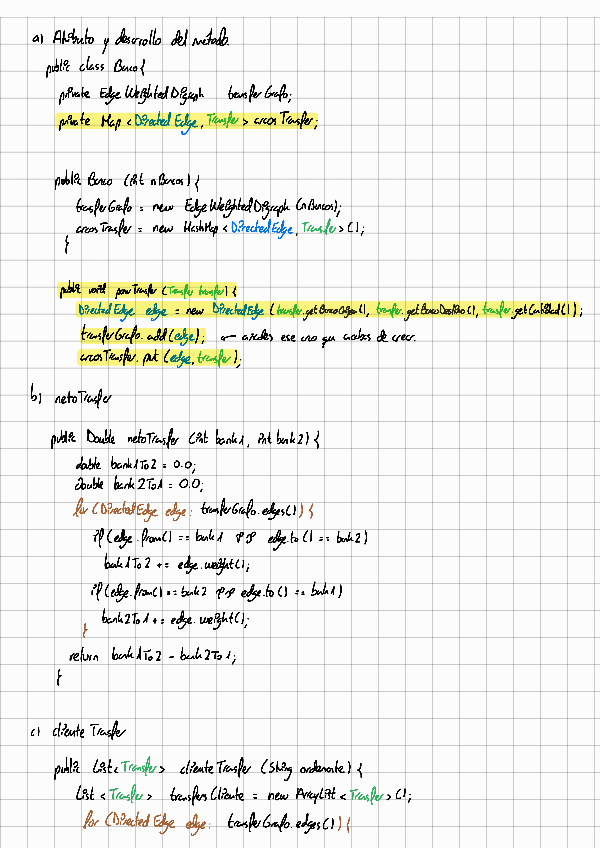 a) Atributo y desarrollo del método.
public class Banco {
private EdgeWeightedDigraph transferGrafo;
private Map <DirectedEdge, Transfer> arcosTransfer;
public Banco (int nBancos) {
transferGrafo = new EdgeWeightedDigraph (nBancos);
arcosTransfer = new HashMap <DirectedEdge, Transfer> ();
}
public void powTransfer (Transfer transfer) {
DirectedEdge edge = new DirectedEdge (transfer.getBancoOrigen(), transfer.getBancoDestino(), transfer.getCantidad());
transferGrafo.add(edge); ← añades ese arco que acabas de crear.
arcosTransfer.put (edge, transfer);
b) netoTransfer
public Double netoTransfer (int bank1, int bank2) {
double bank1To2 = 0.0;
double bank2To1 = 0.0;
for (DirectedEdge edge: transferGrafo.edges()) {
if (edge.from() == bank1 && edge.to() == bank2)
bank1To2 += edge.weight();
if (edge.from() == bank2 && edge.to() == bank1)
bank2To1 += edge.weight();
}
return bank1To2 - bank2To1;
}
c) clienteTransfer
public List<Transfer> clienteTransfer (String ordenante) {
List <Transfer> transfersCliente = new ArrayList <Transfer> ();
for (DirectedEdge edge: transferGrafo.edges()) {